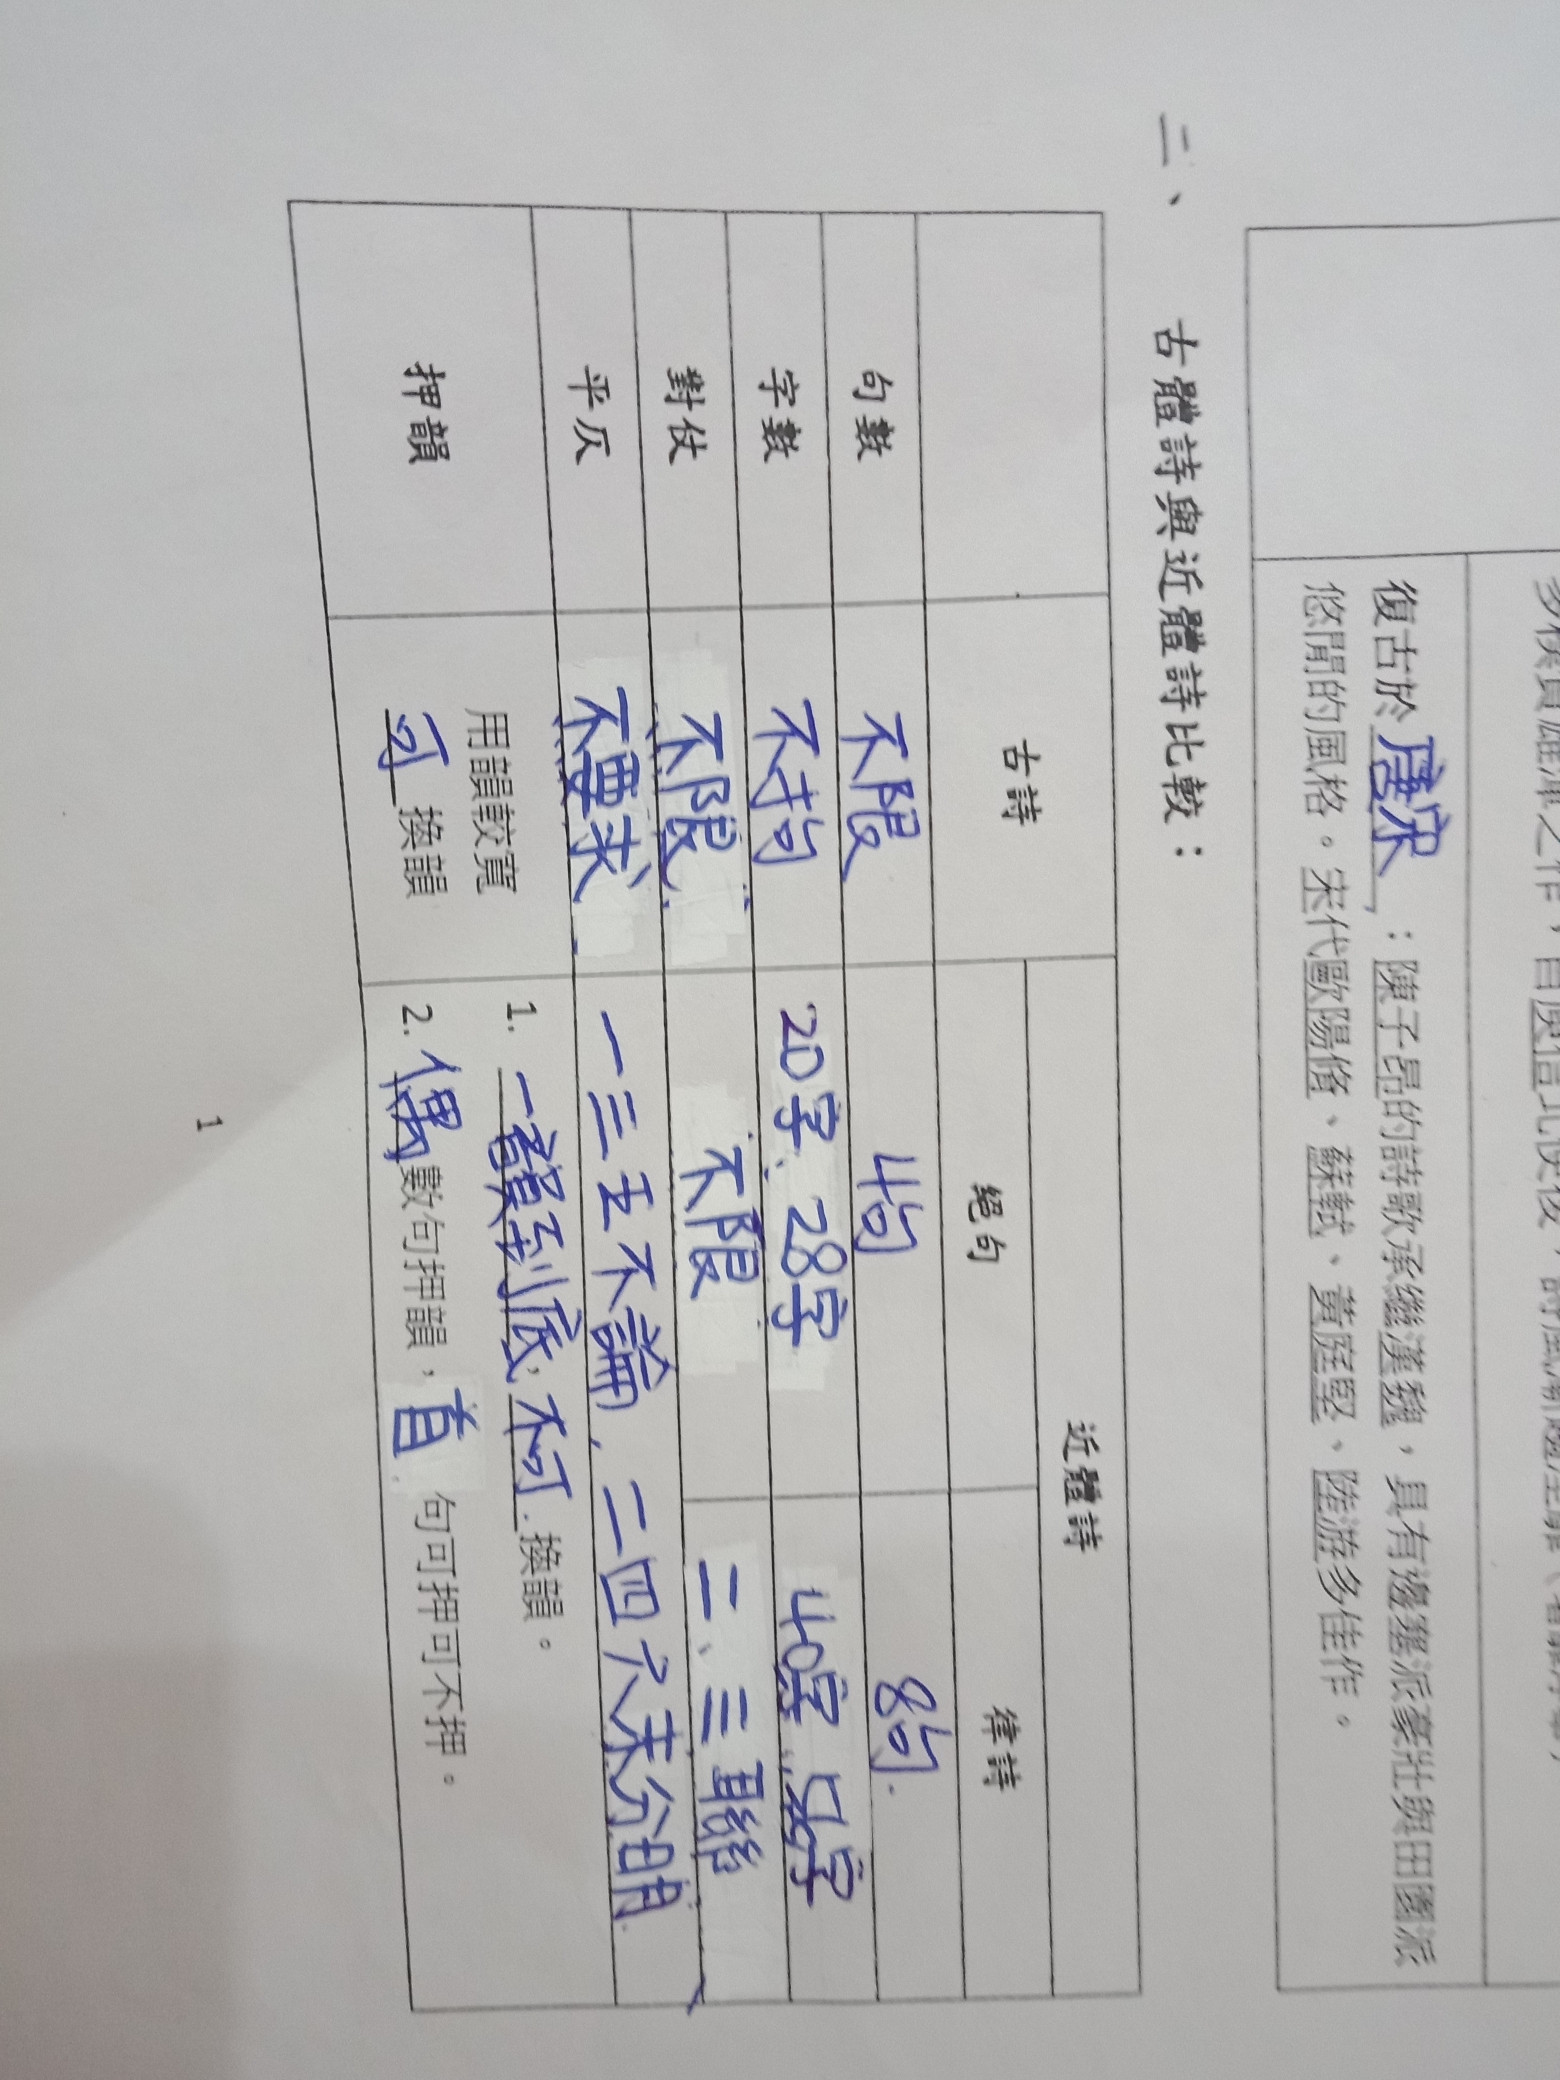 復古於唐宋：陳子昂的詩歌承繼漢魏，具有邊塞派豪壯與田園派
悠閒的風格。宋代歐陽脩、蘇軾、黃庭堅、陸游多佳作。
二、 古體詩與近體詩比較：
古詩 近體詩
絕句 律詩
句數 不限 4句 8句
字數 不拘 20字、28字 40字
對仗 不限 不限 二、三聯
平仄 不要求 一三五不論、二四六未分明
押韻 用韻較寬 可 換韻
1. 一韻到底，不可 換韻。
2. 偶數句押韻，首 句可押可不押。
1